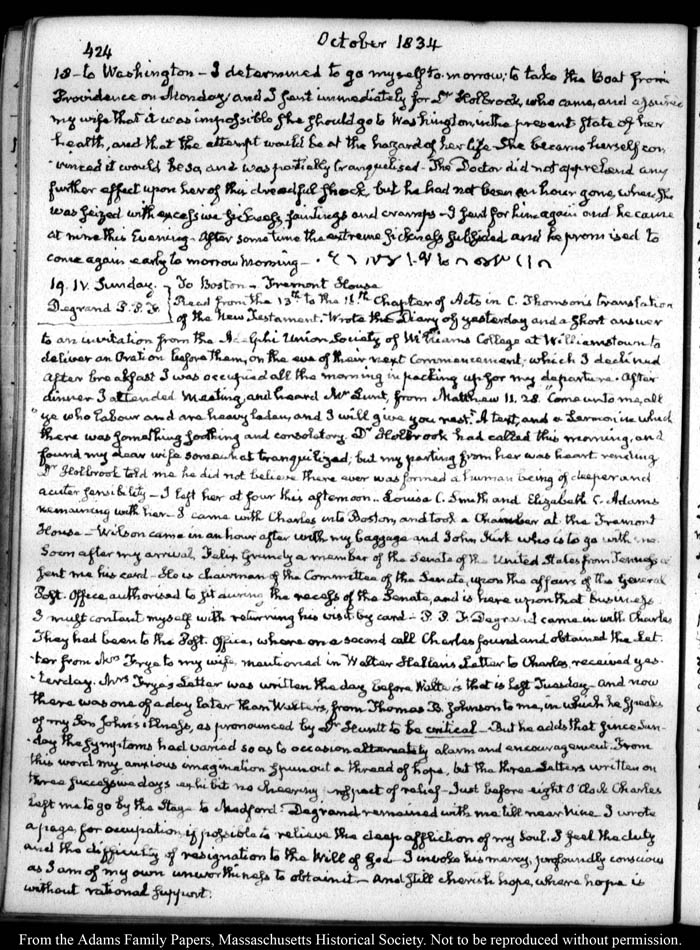 424
October 1834
18 - to Washington - I determined to go myself to-morrow; to take the Boat from
Providence on Monday and I sent immediately for Dr Holbrook, who came, and assured
my wife that it was impossible she should go to Washington in the present state of her
health, and that the attempt would be at the hazard of her life - She became herself con
vinced it would be so, and was partially tranquilised - The Doctor did not apprehend any
further effect upon her of this dreadful shock, but he had not been an hour gone, when she
was seized with excessive sickness, faintings and cramps - I sent for him again and he came
at nine this Evening - After some time the extreme sickness subsided and he promised to
come again early to morrow morning -
19. IV. Sunday. To Boston - Tremont House
Degrand P. P. F. Read from the 13th to the 18th Chapter of Acts in C. Thomson's translation
of the New Testament. Wrote the Diary of yesterday and a short answer
to an invitation from the Adelphi Union Society of Williams College at Williamstown to
deliver an Oration before them, on the eve of their next Commencement; which I declined
After breakfast I was occupied all the morning in packing up for my departure. After
dinner I attended Meeting, and heard Mr Lunt, from Matthew 11. 28. Come unto me, all
"ye who labour and are heavy laden, and I will give you rest." A text, and a Sermon in which
there was something soothing and consolatory. Dr Holbrook had called this morning, and
found my dear wife somewhat tranquilized; but my parting from her was heart rending
Dr Holbrook told me he did not believe there ever was formed a human being of deeper and
acuter sensibility - I left her at four this afternoon.. Louisa C. Smith and Elizabeth C. Adams
remaining with her - I came with Charles into Boston, and took a Chamber at the Tremont
House - Wilson came in an hour after with my baggage and John Kirk who is to go with me.
Soon after my arrival, Felix Grundy a member of the Senate of the United States from Tennessee
sent me his card - He is chairman of the Committee of the Senate, upon the affairs of the General
Post. Office, authorised to sit during the recess of the Senate, and is here upon that business.
I must content myself with returning his visit by card - P. P. F. Degrand came in with Charles
They had been to the Post. Office, where on a second call Charles found and obtained the Let
ter from Mrs Frye to my wife, mentioned in Walter Hellen's Letter to Charles, received yes
terday. Mrs Frye's Letter was written the day before Walter's that is last Tuesday - and now
there was one of a day later than Walter's, from Thomas B. Johnson to me, in which he speaks
of my Son John's illness, as pronounced by Dr Huntt to be critical - But he adds that since Sun-
day the symptoms had varied so as to occasion alternately alarm and encouragement. From
this word my anxious imagination spun out a thread of hope, but the three Letters written on
three successive days exhibit no cheering aspect of relief - Just before eight O'Clock Charles
left me to go by the Stage to Medford. Degrand remained with me till near Nine. I wrote
a page, for occupation, if possible to relieve the deep affliction of my Soul. I feel the duty
and the difficulty of resignation to the Will of God - I invoke his mercy, profoundly conscious
as I am of my own unworthiness to obtain it - and still cherish hope, where hope is
without rational support.
From the Adams Family Papers, Massachusetts Historical Society. Not to be reproduced without permission.